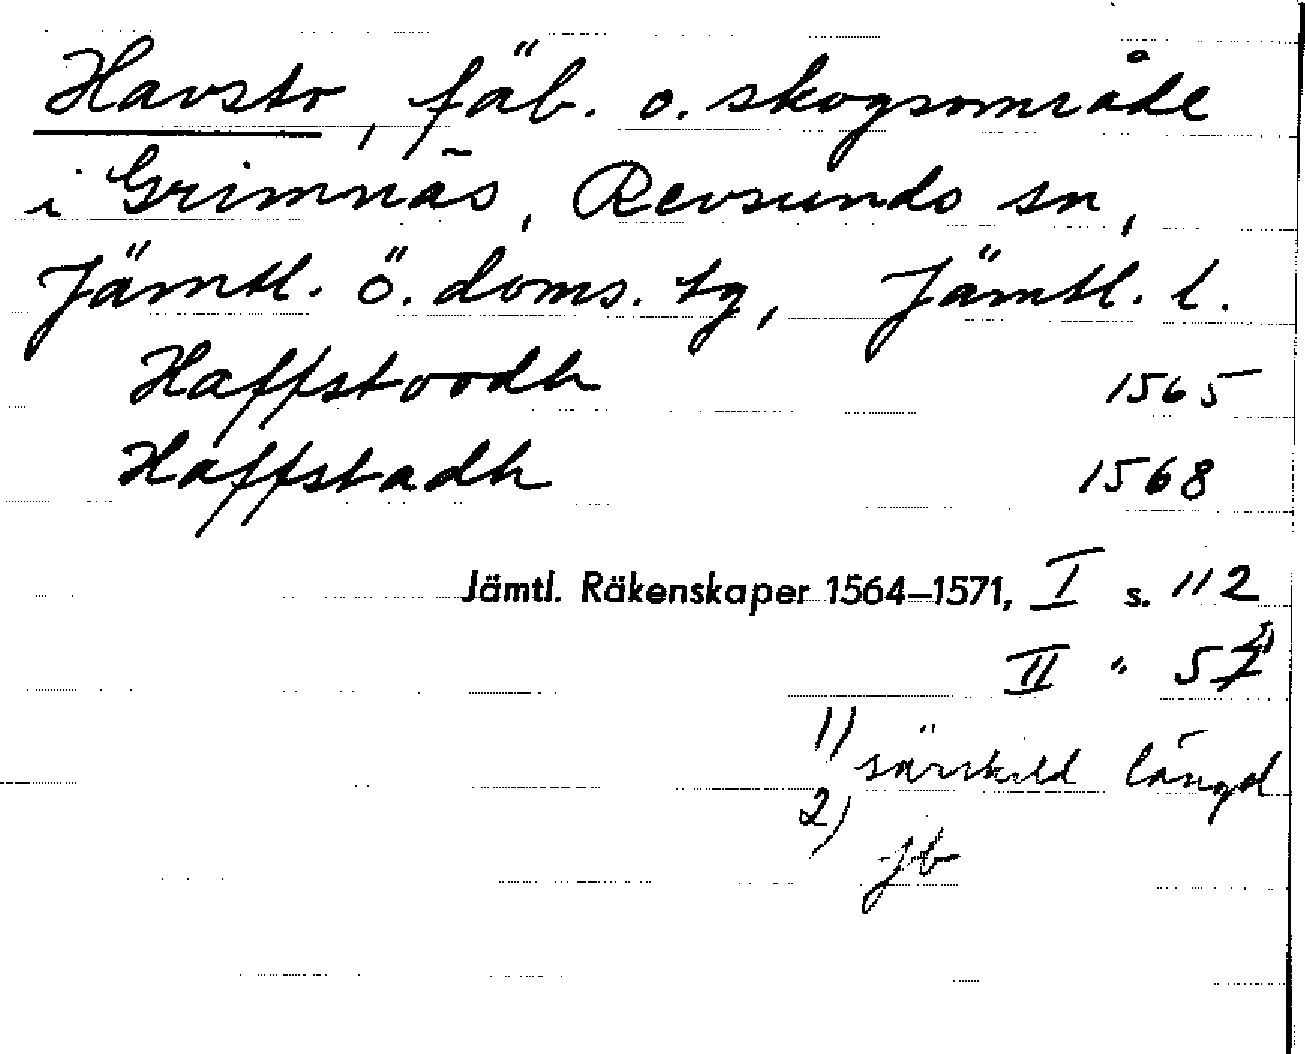 Havsto, fäb. o. skogsområde
i Grimnäs, Revsunds sn,
Jämtl. ö. doms. tg, Jämtl. l.
Haffstoodh 1565
Haffstadh 1568
Jämtl. Räkenskaper 1564–1571, I s. 112
II " 57
1) särskild längd
2) jb